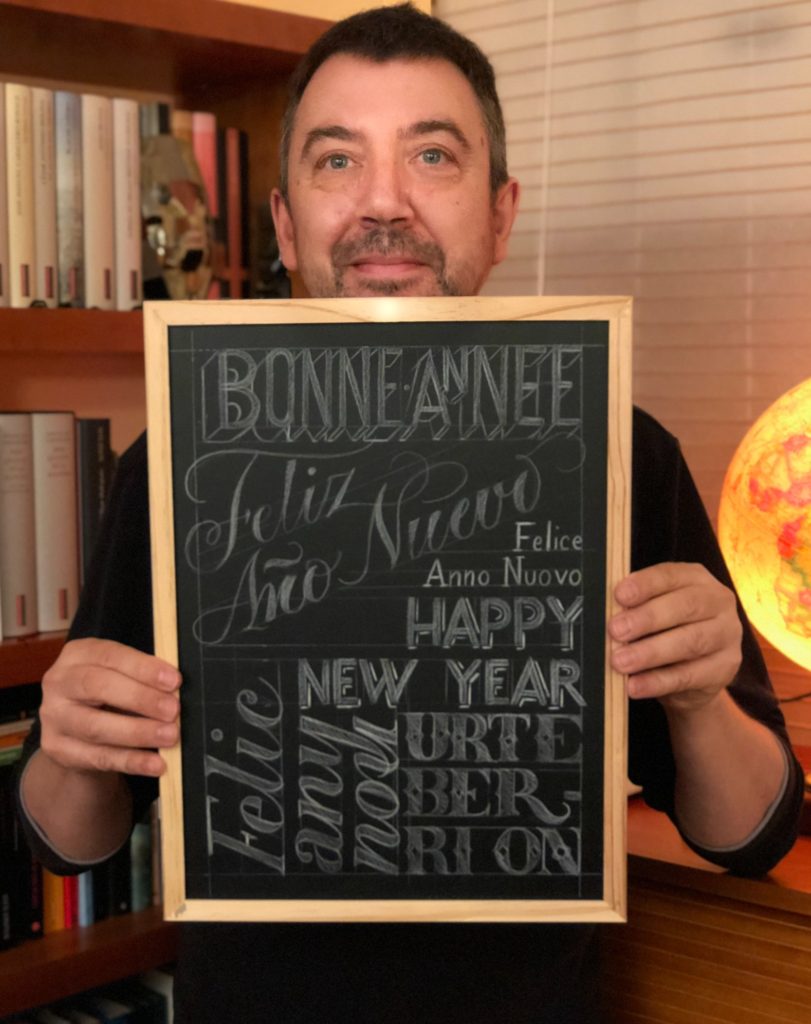 BONNE·ANNEE
Feliz Nuevo
Año
Felice
Anno Nuovo
HAPPY
NEW YEAR
Feliç
any
nou
URTE
BER-
RI ON